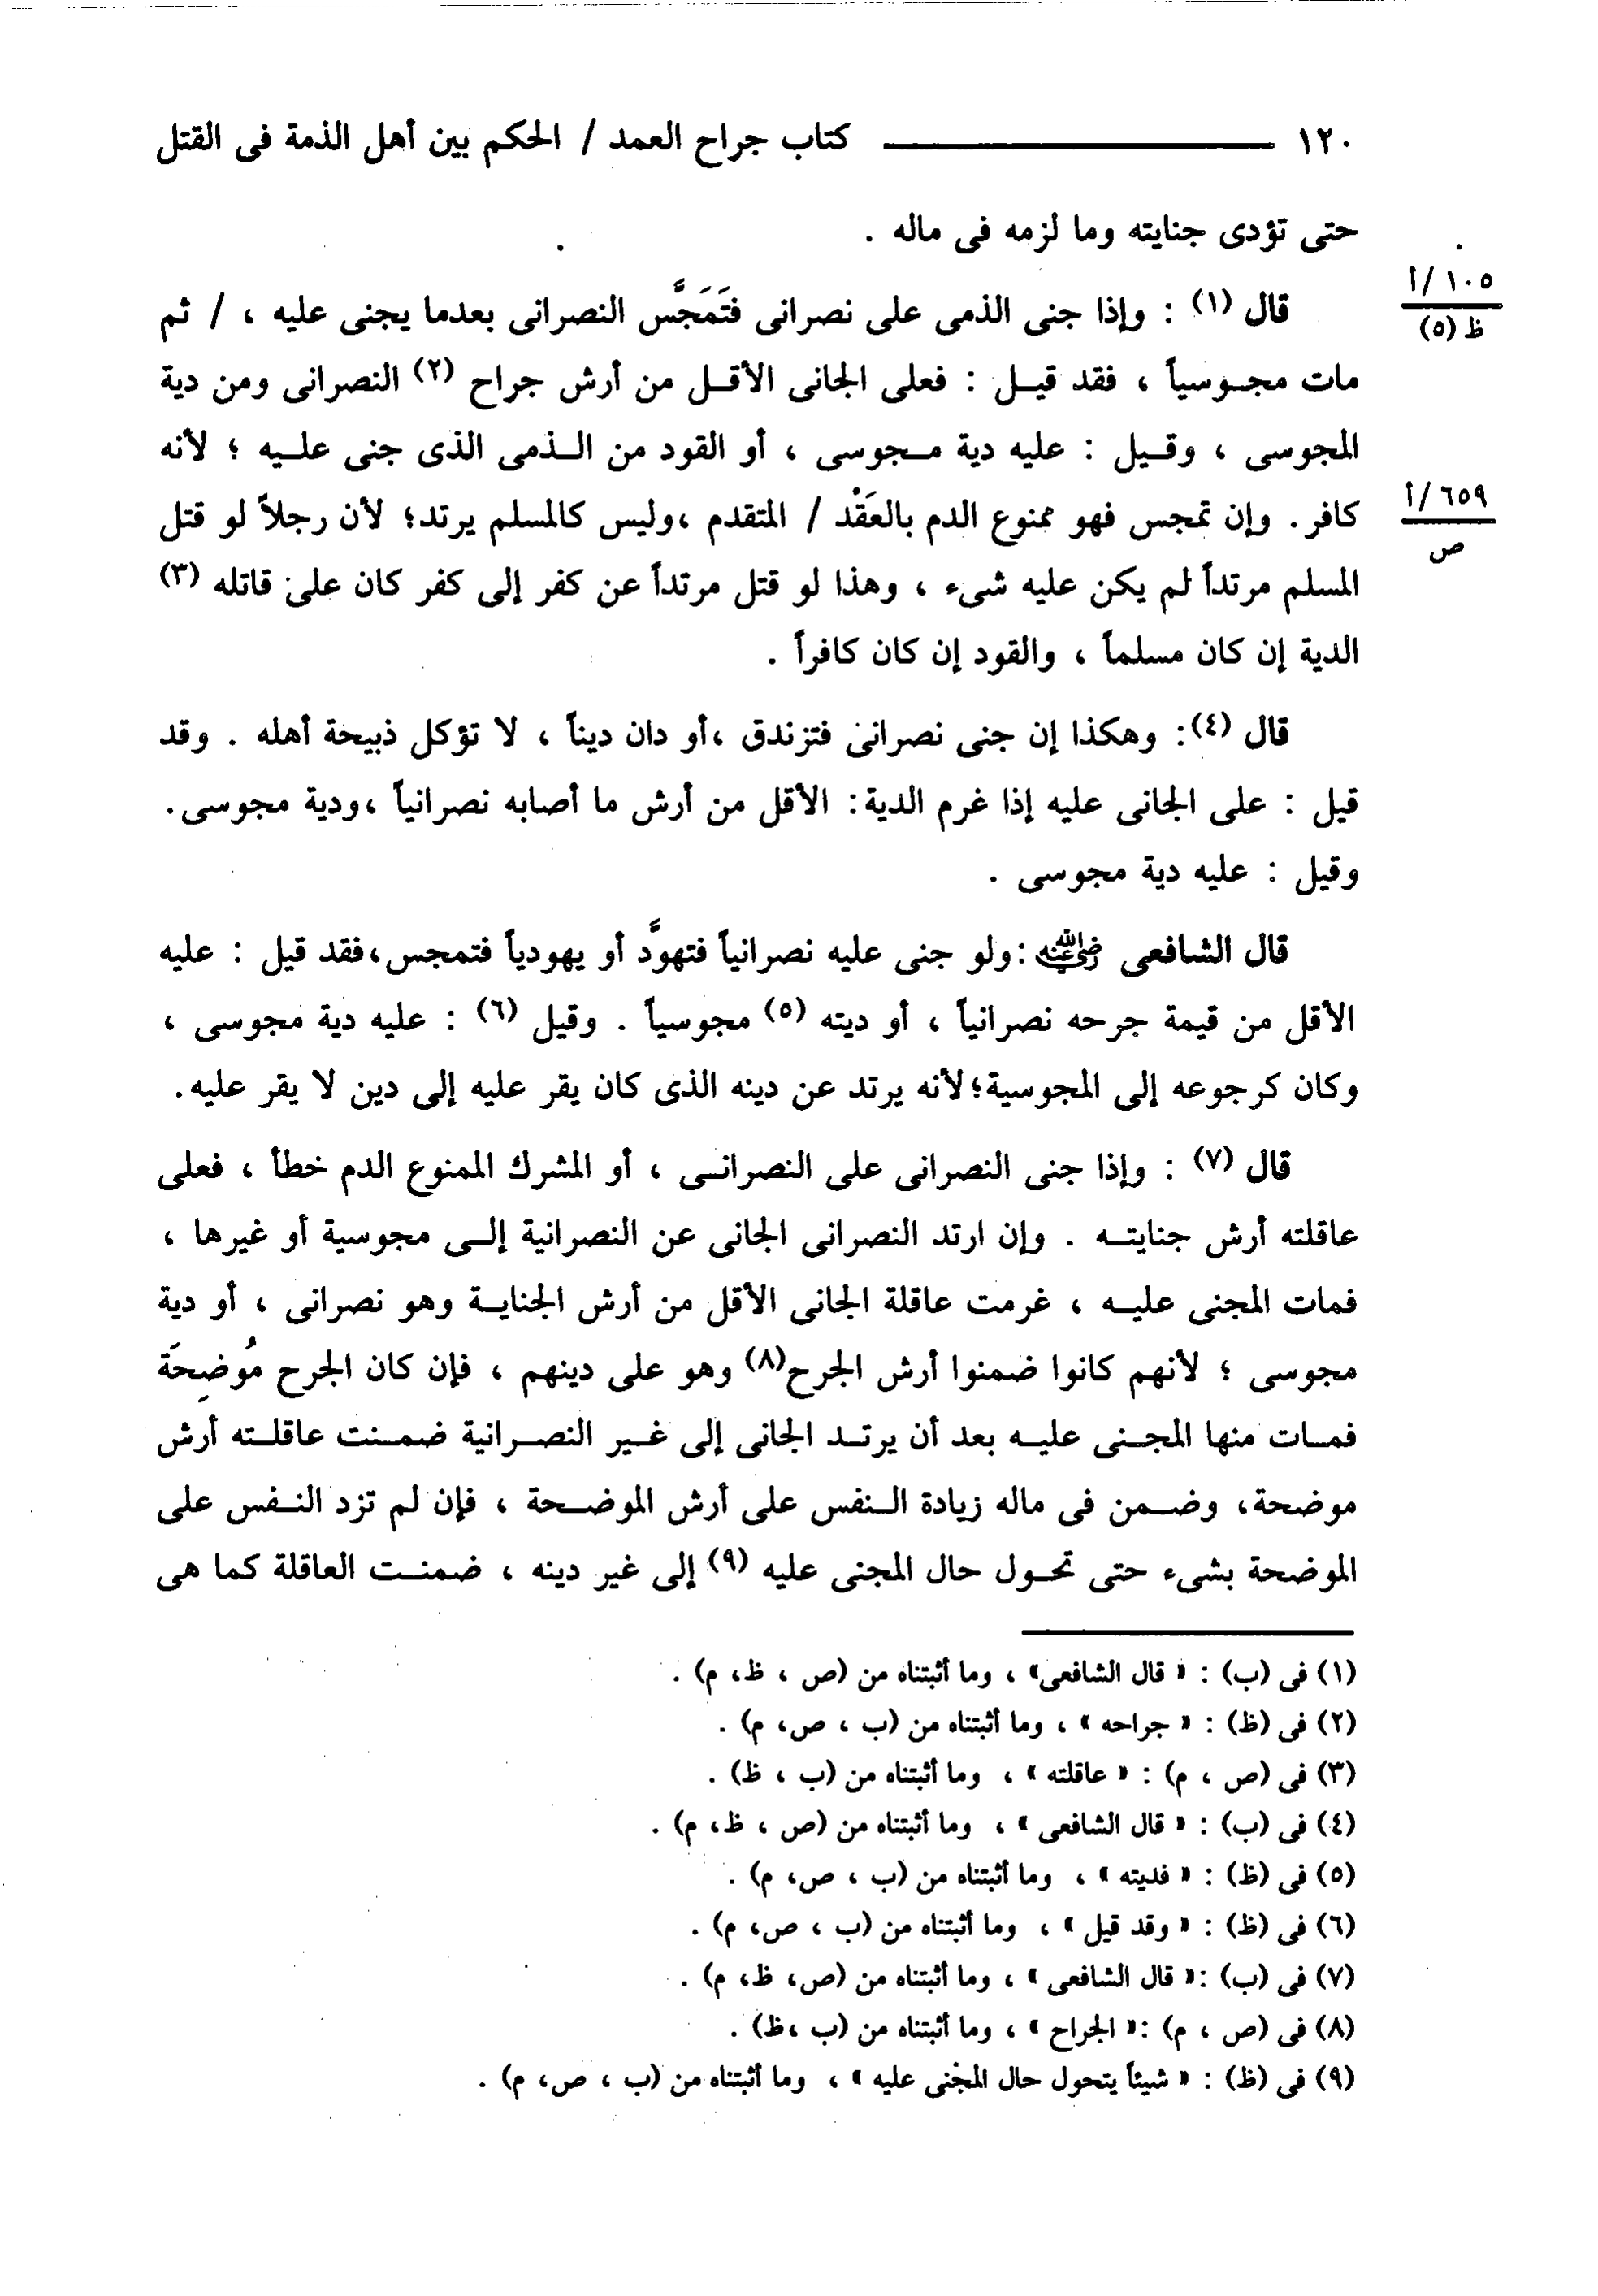 ١٢٠ ــــــــــــــــــــ كتاب جراح العمد / الحكم بين أهل الذمة فى القتل
حتى تؤدى جنايته وما لزمه فى ماله .
١٠٥/أ
ظ (٥)
قال (١) : وإذا جنى الذمى على نصرانى فتَمَجَّس النصرانى بعدما يجنى عليه ، / ثم
مات مجوسياً ، فقد قيل : فعلى الجانى الأقل من أرش جراح (٢) النصرانى ومن دية
المجوسى ، وقيل : عليه دية مجوسى ، أو القود من الذمى الذى جنى عليه ؛ لأنه
٦٥٩/أ
ص
كافر . وإن تمجس فهو ممنوع الدم بالعَقْد / المتقدم ،وليس كالمسلم يرتد؛ لأن رجلاً لو قتل
المسلم مرتداً لم يكن عليه شىء ، وهذا لو قتل مرتداً عن كفر إلى كفر كان على قاتله (٣)
الدية إن كان مسلماً ، والقود إن كان كافراً .
قال (٤): وهكذا إن جنى نصرانى فتزندق ،أو دان ديناً ، لا تؤكل ذبيحة أهله . وقد
قيل : على الجانى عليه إذا غرم الدية: الأقل من أرش ما أصابه نصرانياً ،ودية مجوسى.
وقيل : عليه دية مجوسى .
قال الشافعى رضي الله عنه :ولو جنى عليه نصرانياً فتهوَّد أو يهودياً فتمجس،فقد قيل : عليه
الأقل من قيمة جرحه نصرانياً ، أو ديته (٥) مجوسياً . وقيل (٦) : عليه دية مجوسى ،
وكان كرجوعه إلى المجوسية؛لأنه يرتد عن دينه الذى كان يقر عليه إلى دين لا يقر عليه.
قال (٧) : وإذا جنى النصرانى على النصرانى ، أو المشرك الممنوع الدم خطأ ، فعلى
عاقلته أرش جنايته . وإن ارتد النصرانى الجانى عن النصرانية إلى مجوسية أو غيرها ،
فمات المجنى عليه ، غرمت عاقلة الجانى الأقل من أرش الجناية وهو نصرانى ، أو دية
مجوسى ؛ لأنهم كانوا ضمنوا أرش الجرح(٨) وهو على دينهم ، فإن كان الجرح مُوضِحَة
فمات منها المجنى عليه بعد أن يرتد الجانى إلى غير النصرانية ضمنت عاقلته أرش
موضحة، وضمن فى ماله زيادة النفس على أرش الموضحة ، فإن لم تزد النفس على
الموضحة بشىء حتى تحول حال المجنى عليه (٩) إلى غير دينه ، ضمنت العاقلة كما هى
(١) فى (ب) : « قال الشافعى» ، وما أثبتناه من (ص ، ظ، م) .
(٢) فى (ظ) : « جراحه » ، وما أثبتناه من (ب ، ص، م) .
(٣) فى (ص ، م) : « عاقلته » ، وما أثبتناه من (ب ، ظ) .
(٤) فى (ب) : « قال الشافعى » ، وما أثبتناه من (ص ، ظ، م) .
(٥) فى (ظ) : « فديته » ، وما أثبتناه من (ب ، ص، م) .
(٦) فى (ظ) : « وقد قيل » ، وما أثبتناه من (ب ، ص، م) .
(٧) فى (ب) :« قال الشافعى » ، وما أثبتناه من (ص، ظ، م) .
(٨) فى (ص ، م) :« الجراح » ، وما أثبتناه من (ب ،ظ) .
(٩) فى (ظ) : « شيئاً يتحول حال المجنى عليه » ، وما أثبتناه من (ب ، ص، م) .